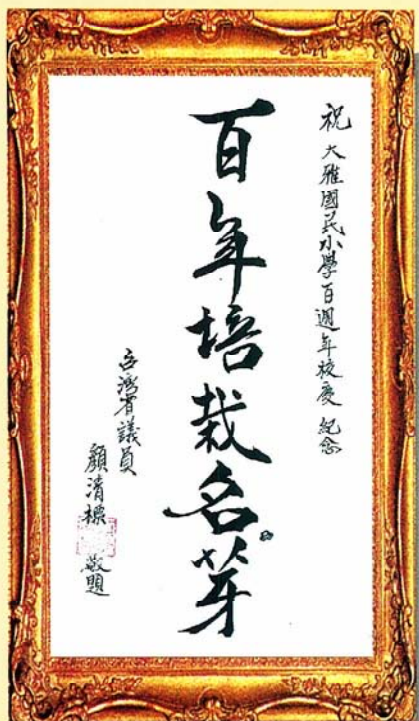 祝 大雅國民小學百週年校慶 紀念
百年培栽名芽
台灣省議員
顏清標 敬題